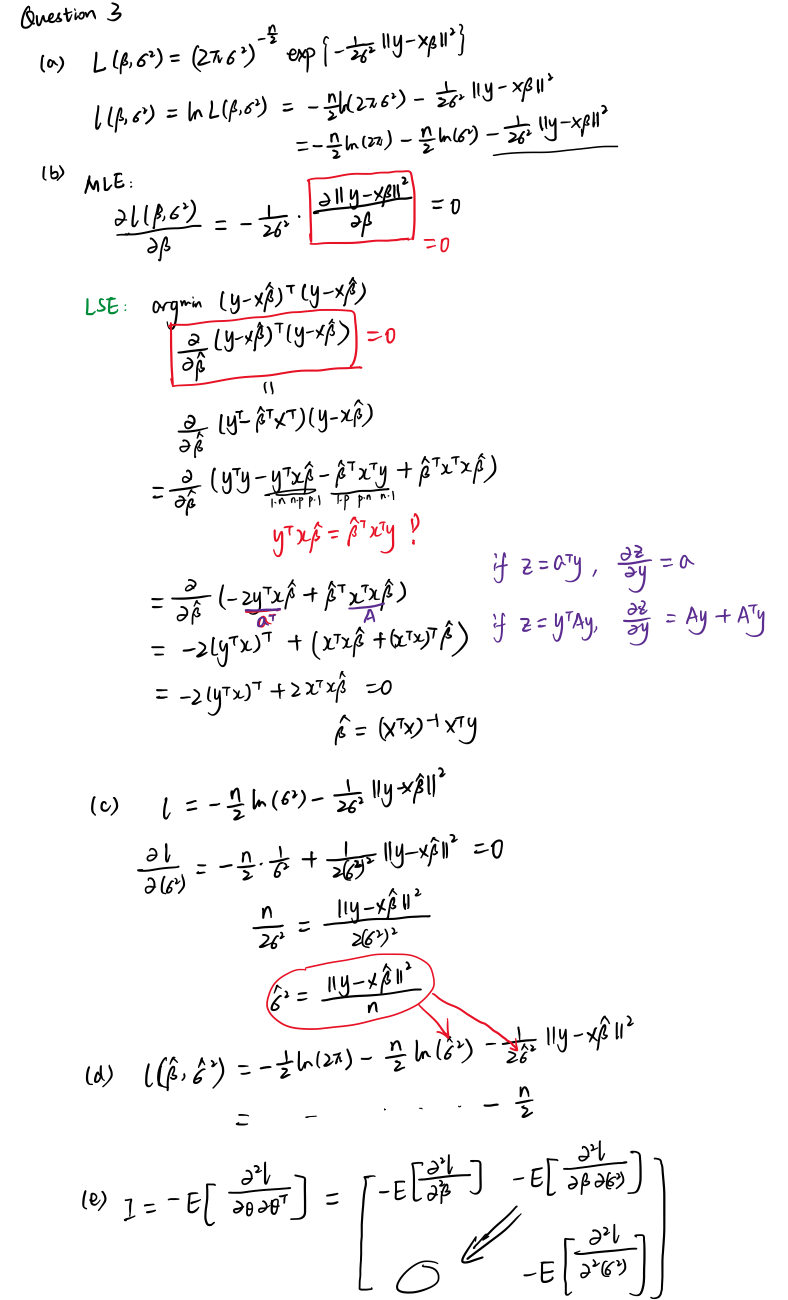 Question 3
(a) L(β,σ²) = (2πσ²)^{-n/2} exp{-1/2σ² ||y-xβ||²}
l(β,σ²) = ln L(β,σ²) = -n/2 ln(2πσ²) - 1/2σ² ||y-xβ||²
= -n/2 ln(2π) - n/2 ln(σ²) - 1/2σ² ||y-xβ||²
(b) MLE:
∂l(β,σ²)/∂β = -1/2σ² · ∂||y-xβ||²/∂β = 0
=0
LSE: argmin (y-xβ̂)ᵀ(y-xβ̂)
∂/∂β̂ (y-xβ̂)ᵀ(y-xβ̂) =0
=
∂/∂β̂ (yᵀ-β̂ᵀxᵀ)(y-xβ̂)
= ∂/∂β̂ (yᵀy - yᵀxβ̂ - β̂ᵀxᵀy + β̂ᵀxᵀxβ̂)
1·n n·p p·1 1·p p·n n·1
yᵀxβ̂ = β̂ᵀxᵀy ?
= ∂/∂β̂ (-2yᵀxβ̂ + β̂ᵀxᵀxβ̂)
aᵀ A
= -2(yᵀx)ᵀ + (xᵀxβ̂ + (xᵀx)ᵀβ̂)
= -2(yᵀx)ᵀ + 2xᵀxβ̂ = 0
β̂ = (xᵀx)⁻¹xᵀy
if z = aᵀy, ∂z/∂y = a
if z = yᵀAy, ∂z/∂y = Ay + Aᵀy
(c) l = -n/2 ln(σ²) - 1/2σ² ||y-xβ̂||²
∂l/∂(σ²) = -n/2 · 1/σ² + 1/2(σ²)² ||y-xβ̂||² = 0
n/2σ² = ||y-xβ̂||²/2(σ²)²
σ̂² = ||y-xβ̂||²/n
(d) l(β̂,σ̂²) = -1/2 ln(2π) - n/2 ln(σ̂²) - 1/2σ̂² ||y-xβ̂||²
= - · · · - n/2
(e) I = -E[∂²l/∂θ∂θᵀ] = [-E[∂²l/∂²β] -E[∂²l/∂β∂(σ²)]
0 -E[∂²l/∂²(σ²)]]